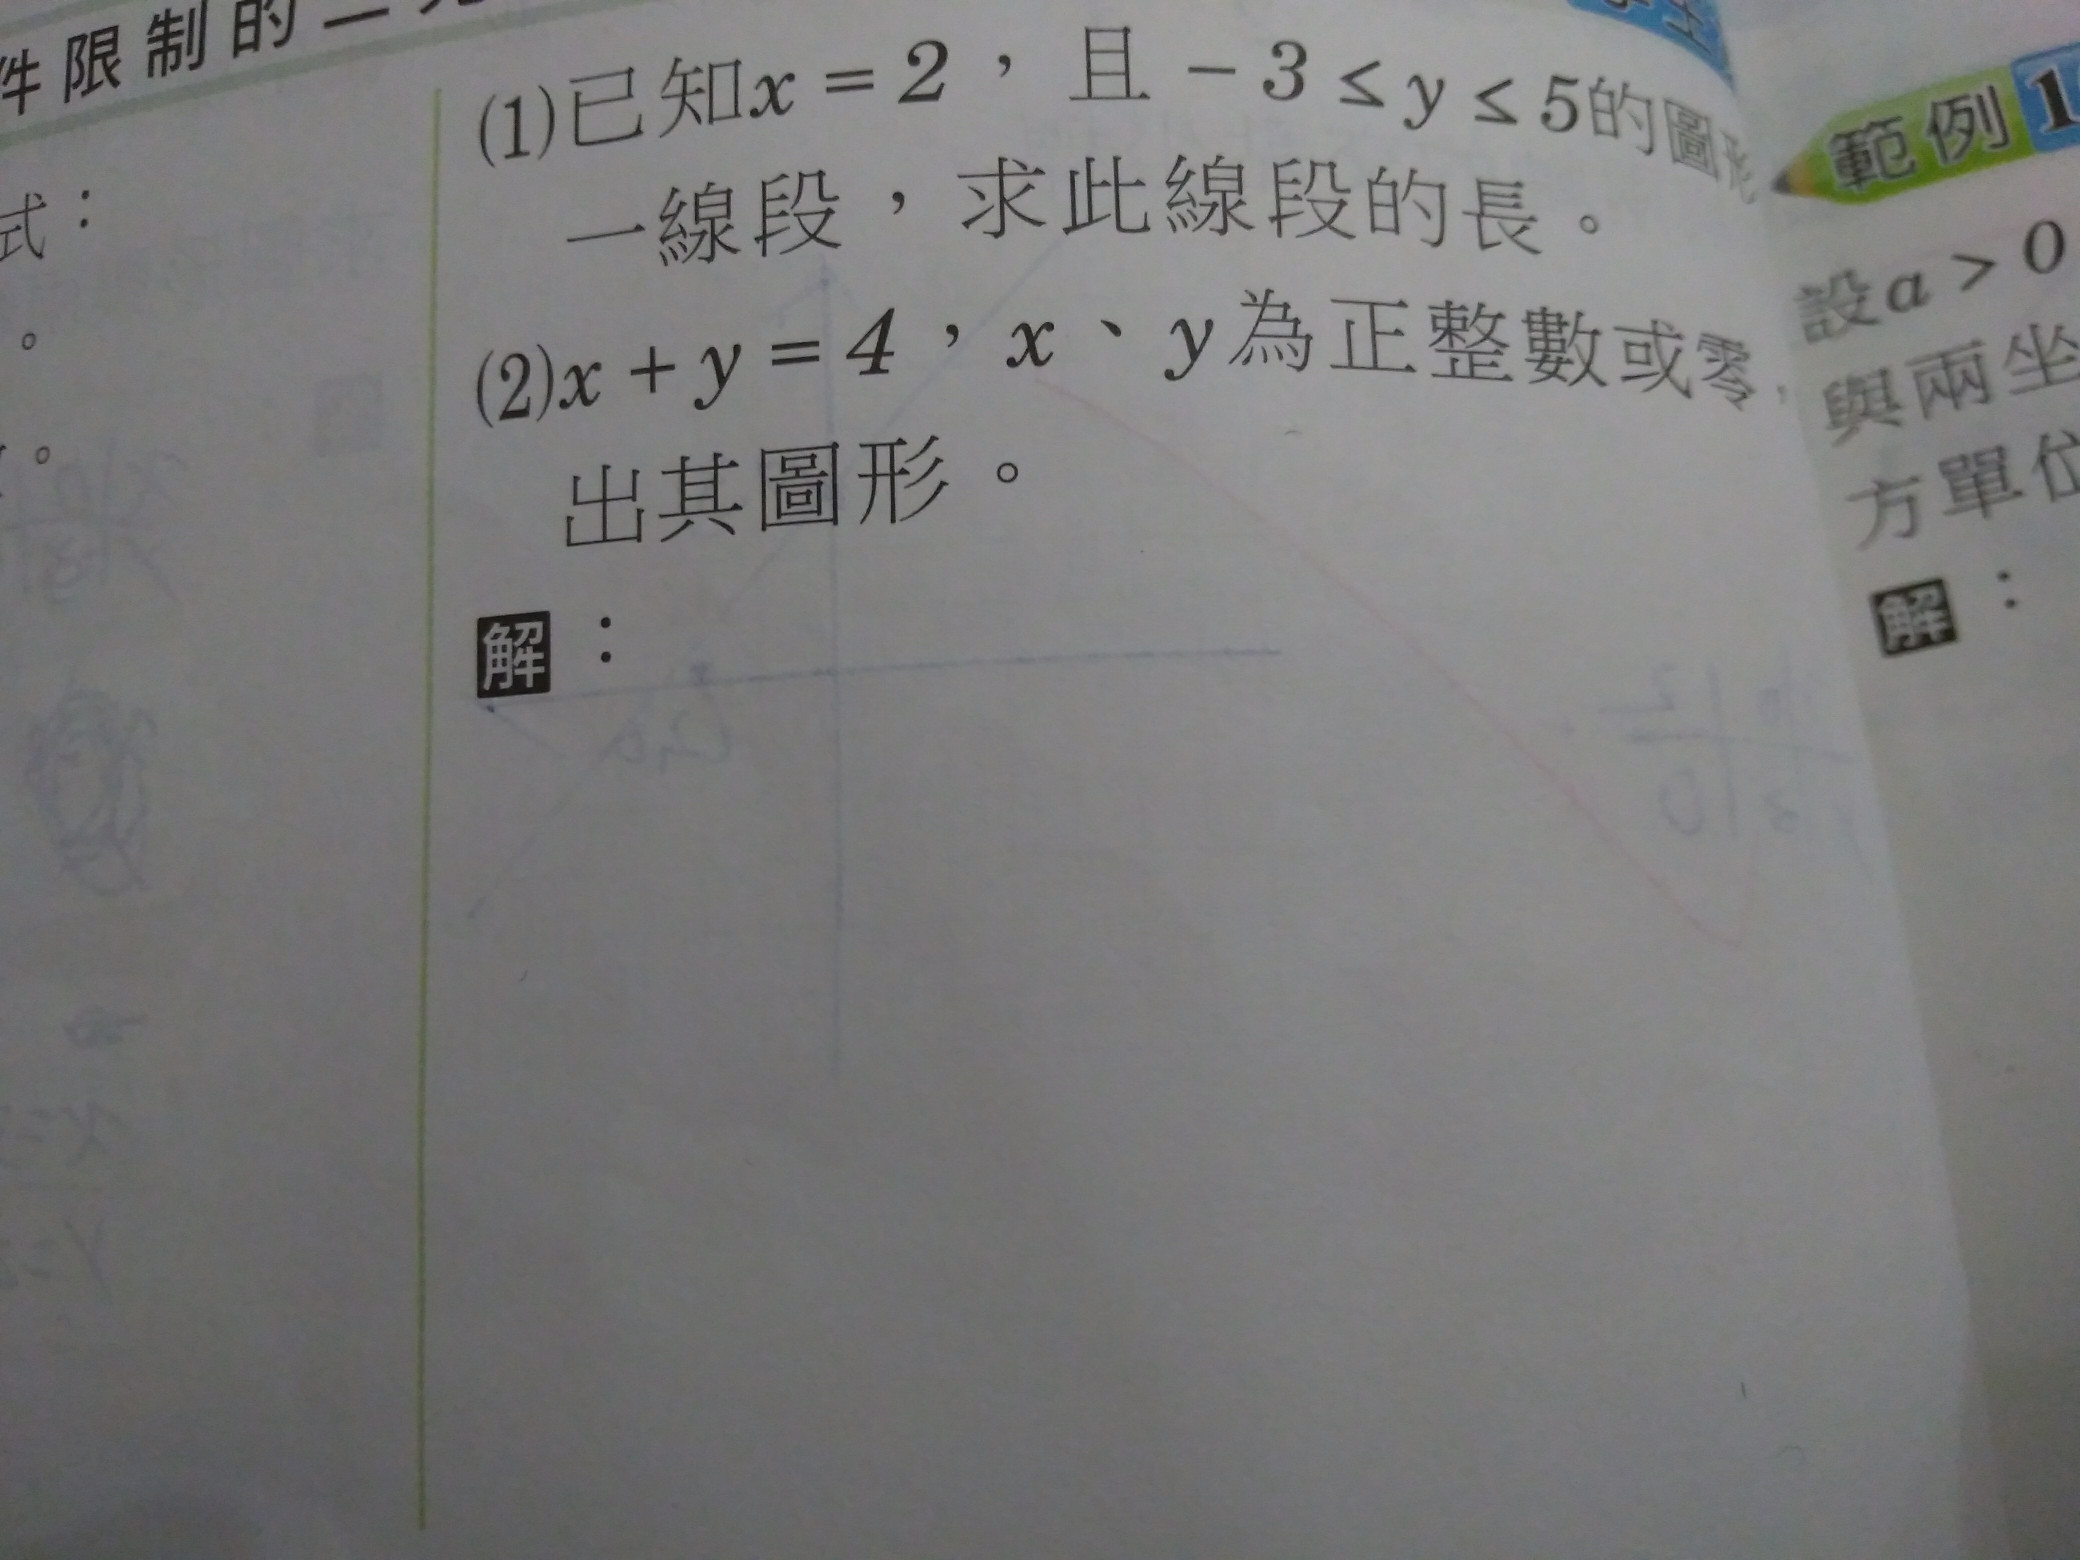 件限制的二元
式：
。
。
(1)已知x = 2，且 − 3 ≤ y ≤ 5的圖形
一線段，求此線段的長。
(2)x + y = 4，x、y為正整數或零，
出其圖形。
解：
範例 1
設a > 0
與兩坐
方單位
解：